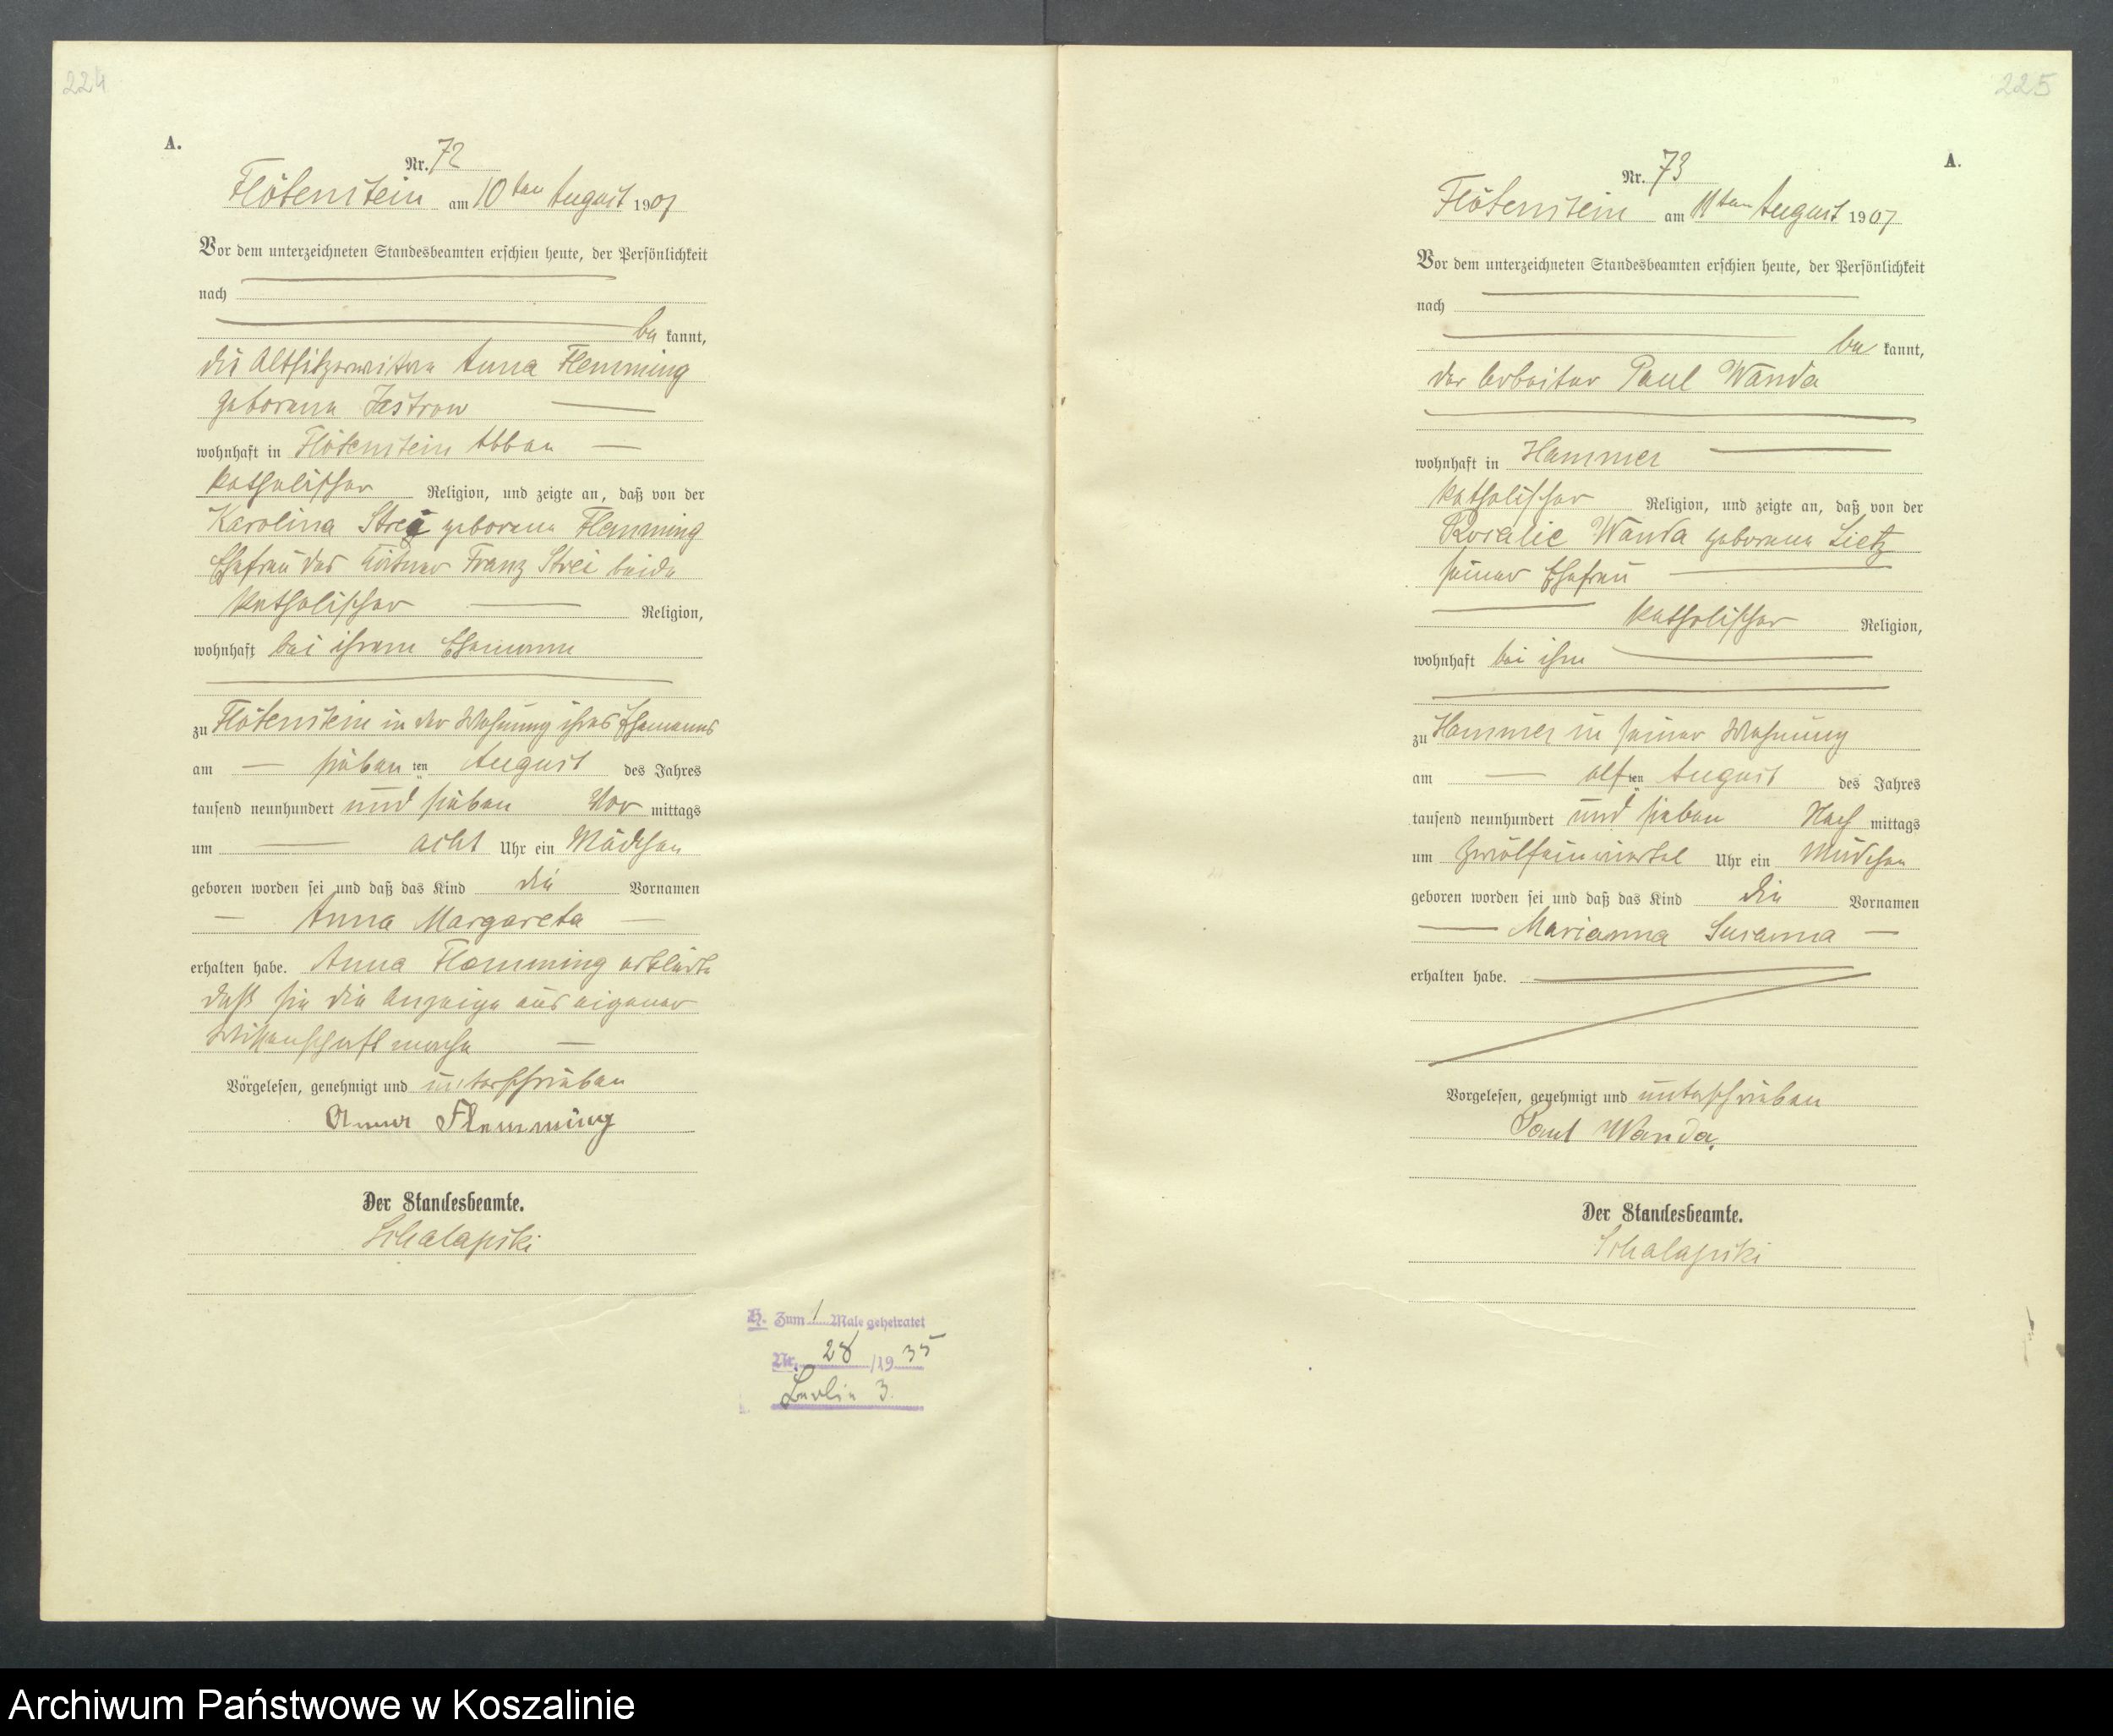 224
A.
Nr. 72
Flötenstein am 10ten August 1907
Vor dem unterzeichneten Standesbeamten erschien heute, der Persönlichkeit
nach
be kannt,
die Altsitzerwitwe Anna Flemming
geborene Jastrow
wohnhaft in Flötenstein Abbau
katholischer Religion, und zeigte an, daß von der
Karolina Strei geborene Flemming
Ehefrau des Franz Strei beide
katholischer Religion,
wohnhaft bei ihrem Ehemann
zu Flötenstein in der Wohnung ihres Ehemannes
am sieben ten August des Jahres
tausend neunhundert und sieben Vor mittags
um acht Uhr ein Mädchen
geboren worden sei und daß das Kind die Vornamen
Anna Margareta
erhalten habe. Anna Flemming erklärte
daß sie die Anzeige aus eigener
Wissenschaft mache
Vorgelesen, genehmigt und unterschrieben
Anna Flemming
Der Standesbeamte.
Schalapski
H. Zum 1 Male geheiratet
Nr. 28 /19 35
Berlin 3.
225
A.
Nr. 73
Flötenstein am 11ten August 1907
Vor dem unterzeichneten Standesbeamten erschien heute, der Persönlichkeit
nach
be kannt,
der Arbeiter Paul Wanda
wohnhaft in Hammer
katholischer Religion, und zeigte an, daß von der
Rosalie Wanda geborene Lietz
seiner Ehefrau
katholischer Religion,
wohnhaft bei ihm
zu Hammer in seiner Wohnung
am elf ten August des Jahres
tausend neunhundert und sieben Nach mittags
um zwölfeinviertel Uhr ein Mädchen
geboren worden sei und daß das Kind die Vornamen
Marianna Susanna
erhalten habe.
Vorgelesen, genehmigt und unterschrieben
Paul Wanda.
Der Standesbeamte.
Schalapski
Archiwum Państwowe w Koszalinie